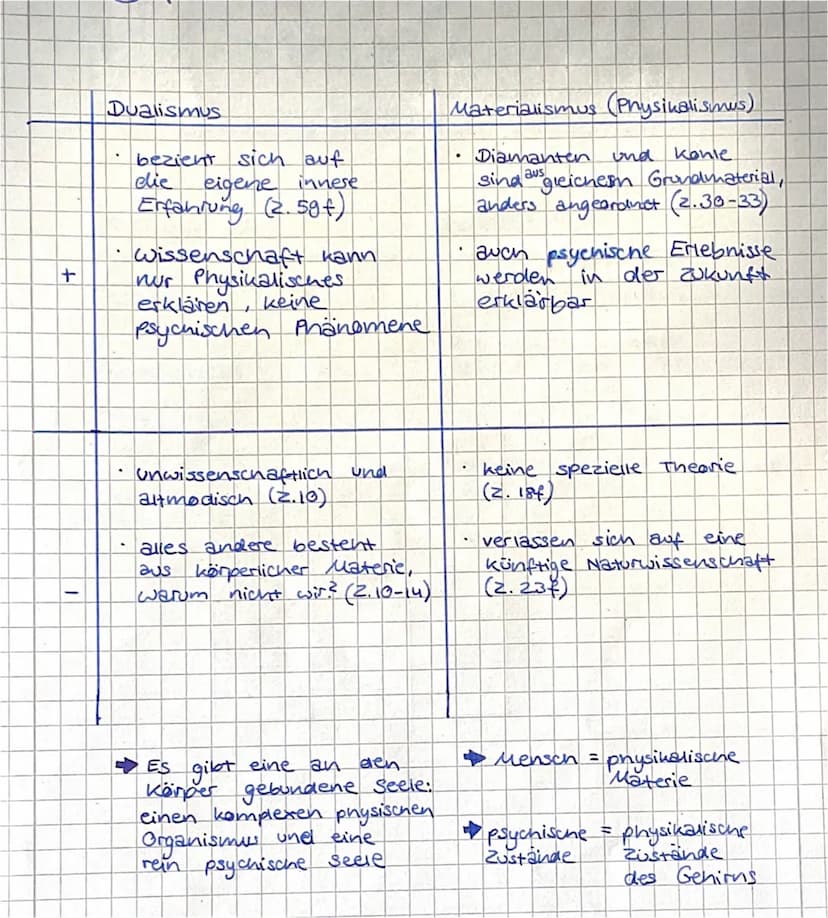 Dualismus
Materialismus (Physikalismus)
+
· bezieht sich auf
die eigene innere
Erfahrung (Z. 59f)
· Wissenschaft kann
nur Physikalisches
erklären, keine
psychischen Phänomene
· Diamanten und Kohle
sind aus gleichem Grundmaterial,
anders angeordnet (Z. 30-33)
· auch psychische Erlebnisse
werden in der Zukunft
erklärbar
-
· unwissenschaftlich und
altmodisch (Z.10)
· alles andere besteht
aus körperlicher Materie,
warum nicht wir? (Z.10-14)
· keine spezielle Theorie
(Z. 18f)
· verlassen sich auf eine
künftige Naturwissenschaft
(Z. 23f)
➡ Es gibt eine an den
Körper gebundene Seele:
einen komplexen physischen
Organismus und eine
rein psychische Seele
➡ Mensch = physikalische
Materie
➡ psychische = physikalische
Zustände Zustände
des Gehirns